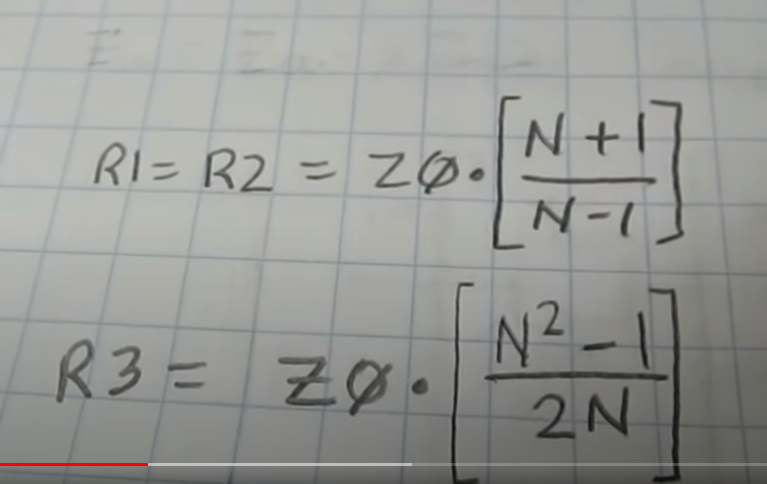 R1 = R2 = ZØ · [N + 1 / N - 1]
R3 = ZØ · [N² - 1 / 2N]